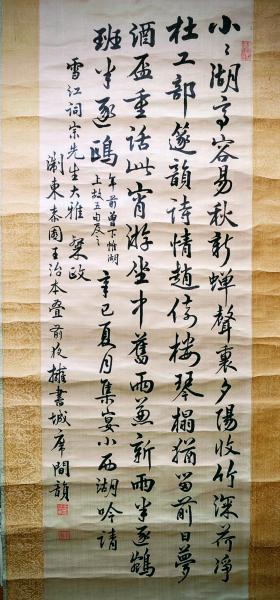 小〻湖亭容易秋新蟬聲裏夕陽收竹深荷淨
杜工部篴韻詩情趙倚樓琴榻猶留前日夢
酒盃重話此宵游坐中舊雨兼新雨半逐鵷
班半逐鷗 年前曾下榻湖
上故五句及之 辛巳夏月集宴小西湖吟請
雪江詞宗先生大雅 粲政
浙東桼園王治本疊前夜擁書城席間韻